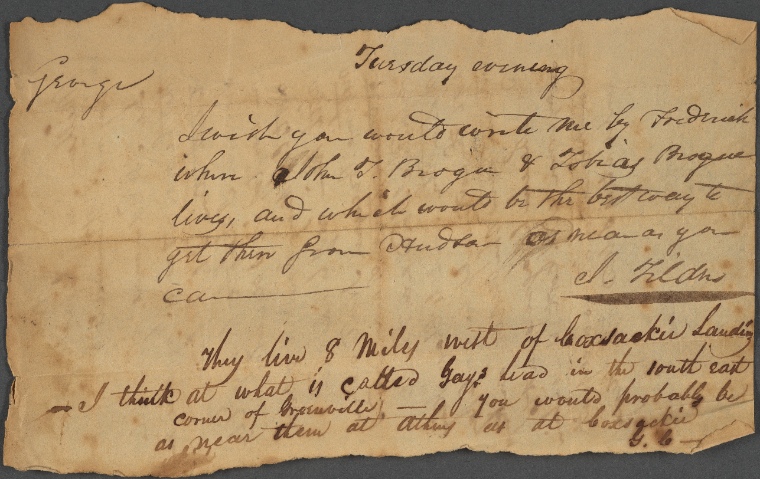 Tuesday evening
George
I wish you would write me by Frederick
where John T. Brogue & Tobias Brogue
lives, and which would be the best way to
get there from Hudson as near as you
can
J. Tilden
They live 8 Miles west of Coxsackie Landing
- I think at what is called Gays road in the south east
corner of Greenville — you would probably be
as near them at Athens as at Coxsackie
G. C